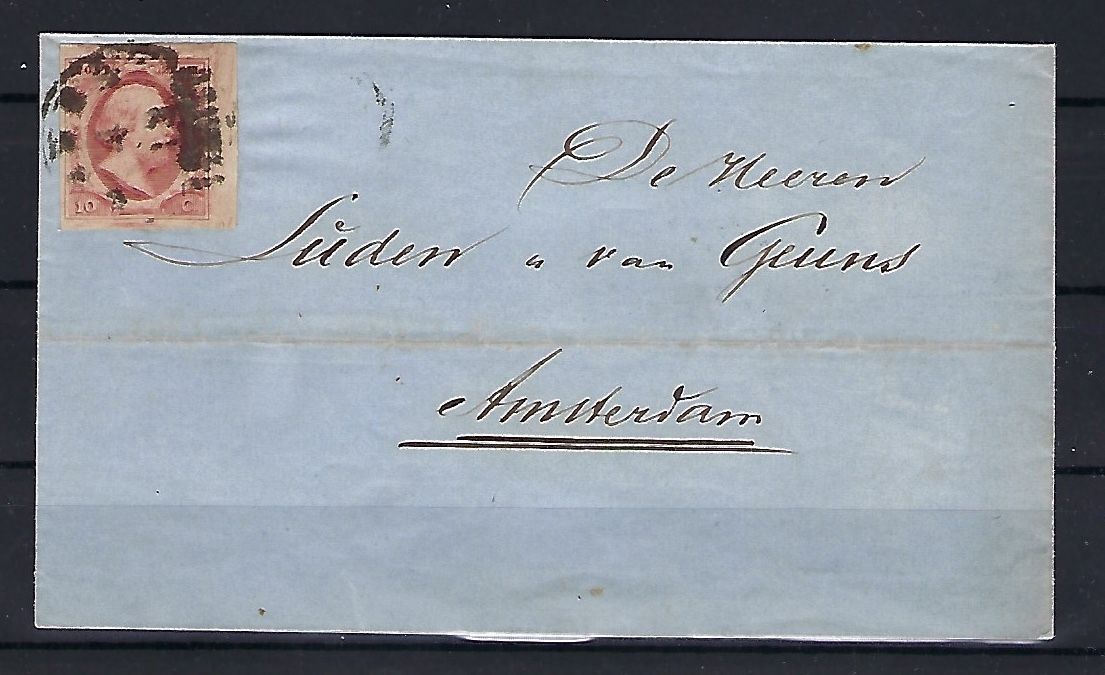 10 C
De Heeren
Süden u van Geuns
Amsterdam